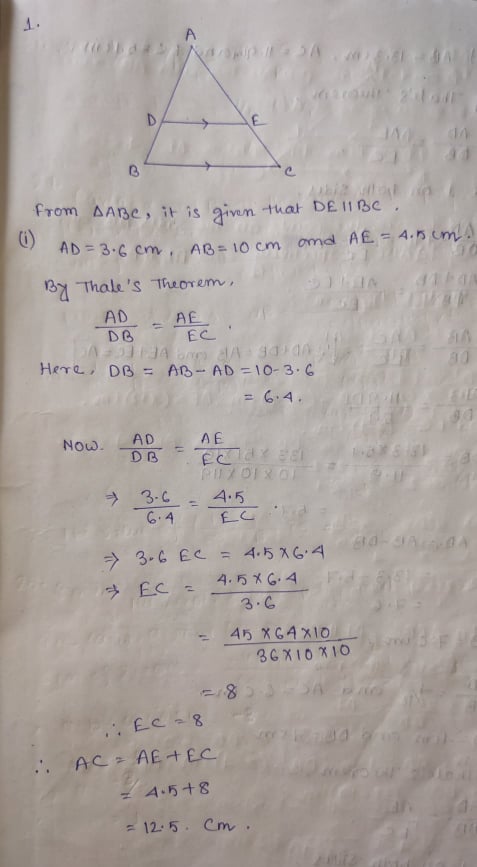 1.
A
D E
B C
From ΔABC, it is given that DE || BC.
(i) AD = 3.6 cm, AB = 10 cm and AE = 4.5 cm.
By Thale's Theorem,
AD/DB = AE/EC.
Here, DB = AB - AD = 10 - 3.6
= 6.4.
Now. AD/DB = AE/EC
⇒ 3.6/6.4 = 4.5/EC.
⇒ 3.6 EC = 4.5 × 6.4
⇒ EC = 4.5 × 6.4/3.6
= 45 × 64 × 10/36 × 10 × 10
= 8
∴ EC = 8
∴ AC = AE + EC
= 4.5 + 8
= 12.5. cm.